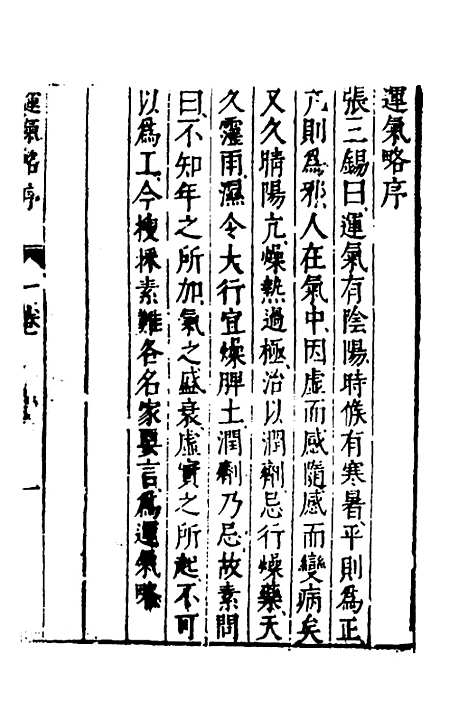 運氣略序
張三錫曰運氣有陰陽時候有寒暑平則為正
亢則為邪人在氣中因虛而感隨感而變病矣
又久晴陽亢燥熱過極治以潤劑忌行燥藥天
久霪雨濕令大行宜燥脾土潤劑乃忌故素問
曰不知年之所加氣之盛衰虛實之所起不可
以為工今搜採素難各名家要言為運氣略
運氣略序 一卷 一